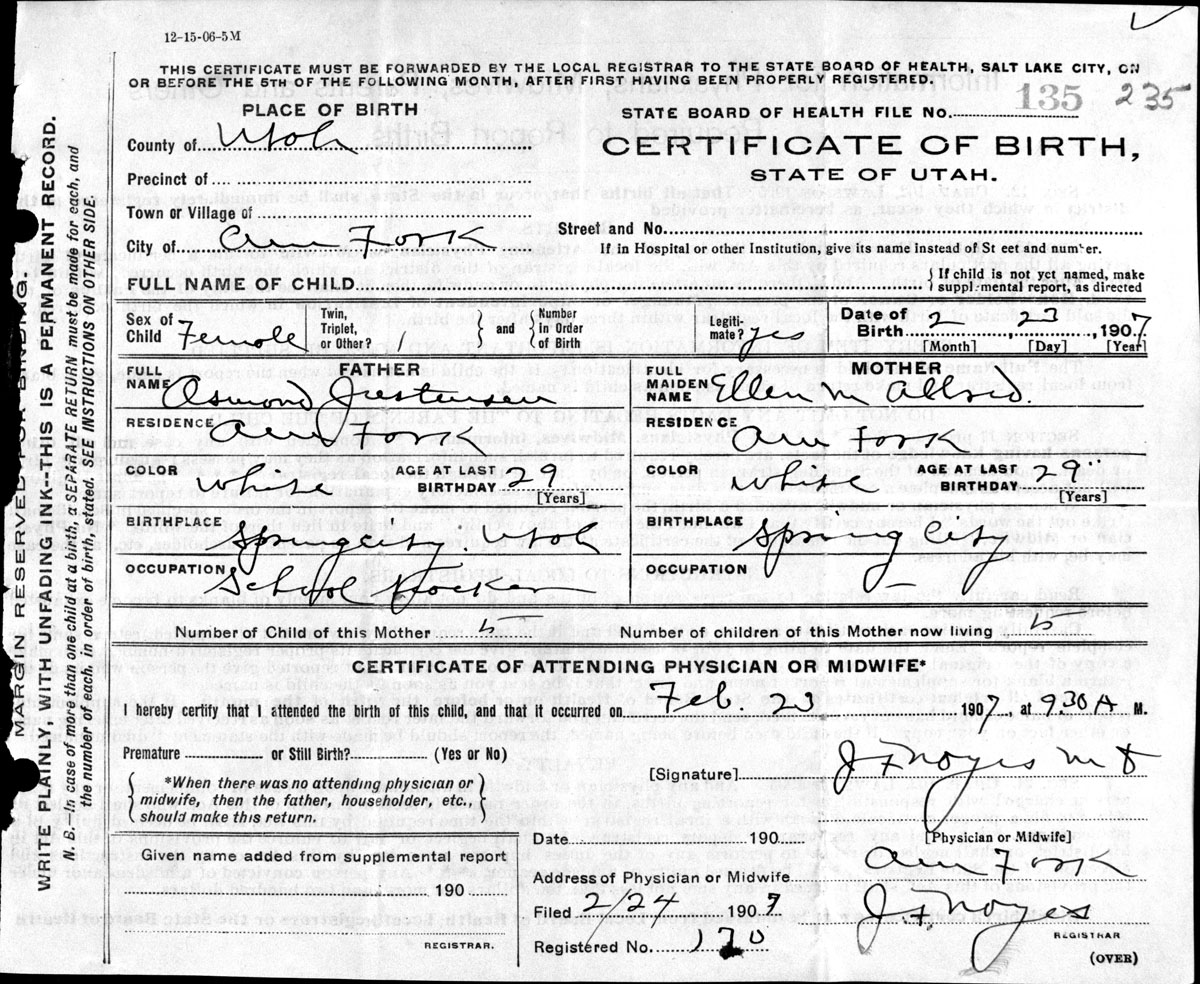 12-15-06-5M
THIS CERTIFICATE MUST BE FORWARDED BY THE LOCAL REGISTRAR TO THE STATE BOARD OF HEALTH, SALT LAKE CITY, ON
OR BEFORE THE 5TH OF THE FOLLOWING MONTH, AFTER FIRST HAVING BEEN PROPERLY REGISTERED.
PLACE OF BIRTH
STATE BOARD OF HEALTH FILE No. 135 235
County of Utah
CERTIFICATE OF BIRTH,
STATE OF UTAH.
Precinct of
Town or Village of
Street and No.
City of Am Fork
If in Hospital or other Institution, give its name instead of St eet and num er.
FULL NAME OF CHILD.
If child is not yet named, make
supplemental report, as directed
Sex of Child Female
Twin, Triplet, or Other?
and
Number in Order of Birth
Legiti- mate? yes
Date of Birth 2 23 1907
[Month] [Day] [Year]
FATHER
FULL NAME Osmond Justensen
RESIDENCE Am Fork
COLOR White AGE AT LAST BIRTHDAY 29
[Years]
BIRTHPLACE Spring city. Utah
OCCUPATION School
MOTHER
FULL MAIDEN NAME Ellen M Allred.
RESIDENCE Am Fork
COLOR White AGE AT LAST BIRTHDAY 29
[Years]
BIRTHPLACE Spring City
OCCUPATION
Number of Child of this Mother 5
Number of children of this Mother now living 5
CERTIFICATE OF ATTENDING PHYSICIAN OR MIDWIFE*
I hereby certify that I attended the birth of this child, and that it occurred on Feb. 23 1907 at 930 A M.
Premature or Still Birth? (Yes or No)
*When there was no attending physician or
midwife, then the father, householder, etc.,
should make this return.
[Signature] J F Noyes M D
[Physician or Midwife]
Date 190
Given name added from supplemental report
190
REGISTRAR.
Address of Physician or Midwife Am Fork
Filed 2/24 1907 J F Noyes
REGISTRAR
Registered No. 170
(OVER)
MARGIN RESERVED FOR BINDING.
WRITE PLAINLY, WITH UNFADING INK--THIS IS A PERMANENT RECORD.
N. B.--In case of more than one child at a birth, a SEPARATE RETURN must be made for each, and
the number of each, in order of birth, stated. SEE INSTRUCTIONS ON OTHER SIDE.